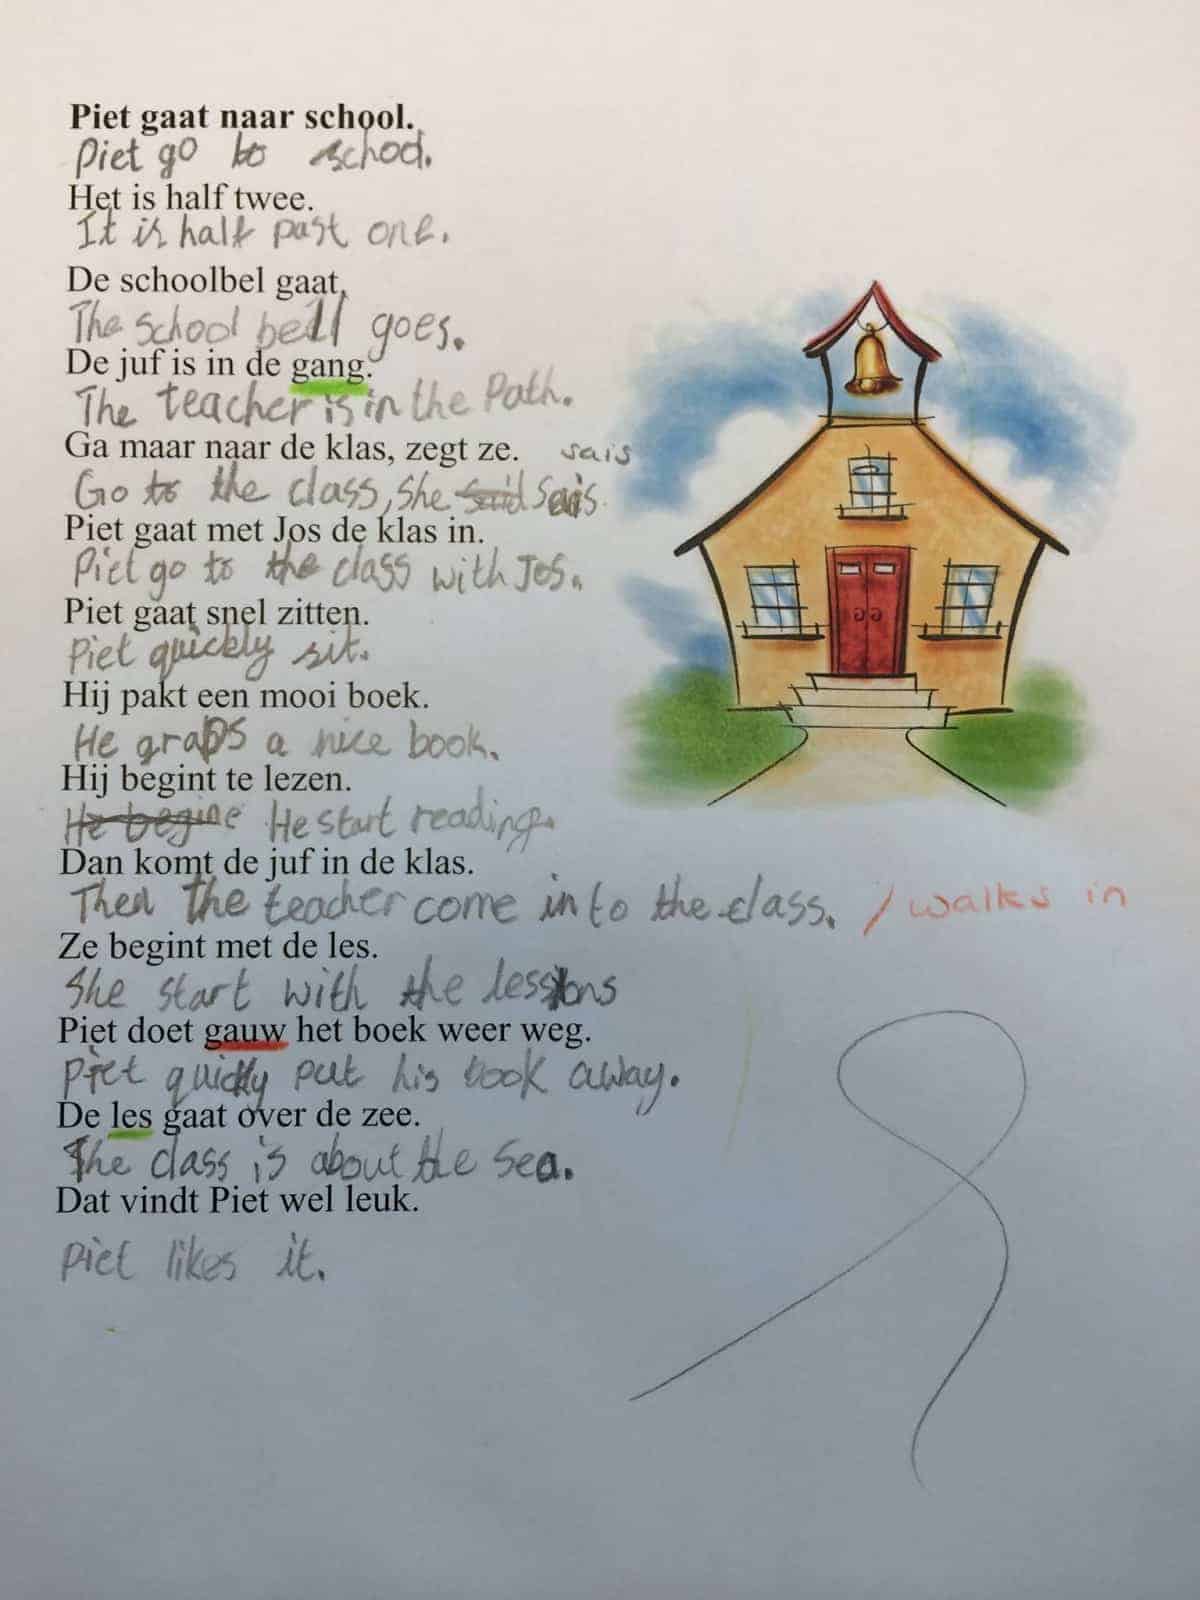 Piet gaat naar school.
Piet go to school.
Het is half twee.
It is half past one.
De schoolbel gaat.
The school bell goes.
De juf is in de gang.
The teacher is in the Path.
Ga maar naar de klas, zegt ze. sais
Go to the class, she said sais.
Piet gaat met Jos de klas in.
Piet go to the class with Jos.
Piet gaat snel zitten.
Piet quickly sit.
Hij pakt een mooi boek.
He graps a nice book.
Hij begint te lezen.
He begine He start reading.
Dan komt de juf in de klas.
Then the teacher come into the class. / walks in
Ze begint met de les.
She start with the lessons
Piet doet gauw het boek weer weg.
Piet quickly put his book away.
De les gaat over de zee.
The class is about the sea.
Dat vindt Piet wel leuk.
Piet likes it.